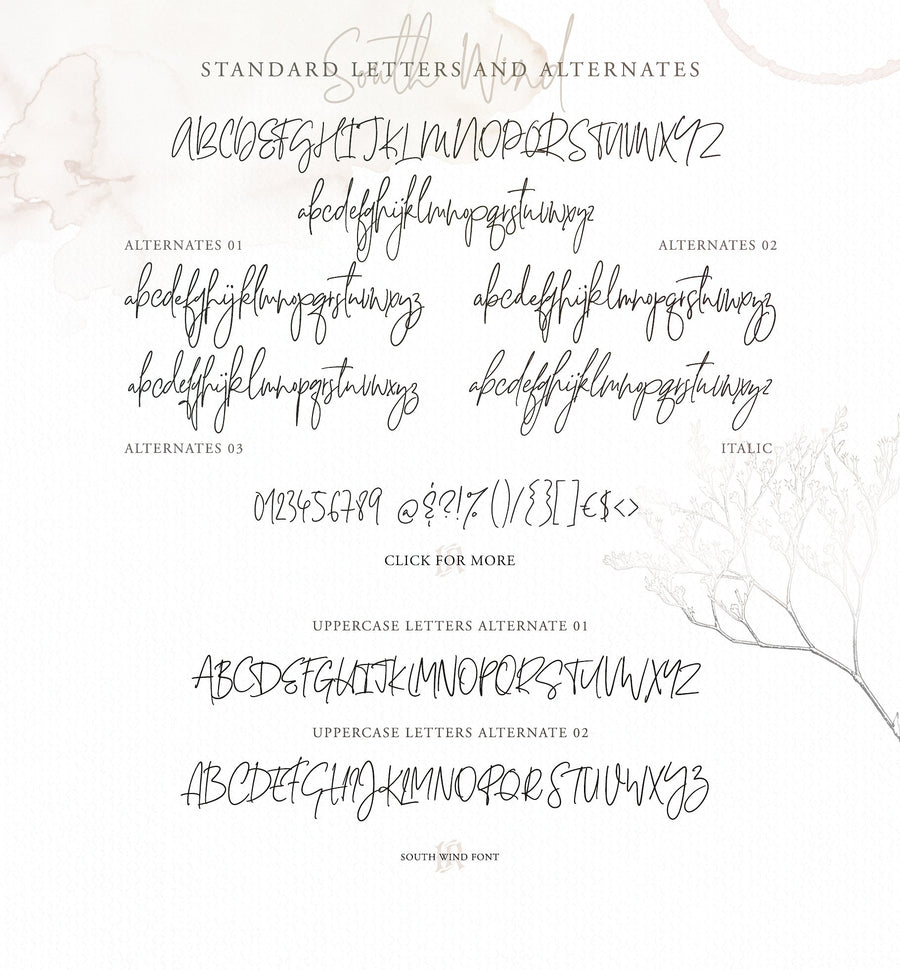 South Wind
STANDARD LETTERS AND ALTERNATES
ABCDEFGHIJKLMNOPQRSTUVWXYZ
abcdefghijklmnopqrstuvwxyz
ALTERNATES 01
ALTERNATES 02
abcdefghijklmnopqrstuvwxyz
abcdefghijklmnopqrstuvwxyz
abcdefghijklmnopqrstuvwxyz
abcdefghijklmnopqrstuvwxyz
ALTERNATES 03
ITALIC
0123456789 @&?!%()/{}[]€$<>
CLICK FOR MORE
UPPERCASE LETTERS ALTERNATE 01
ABCDEFGHIJKLMNOPQRSTUVWXYZ
UPPERCASE LETTERS ALTERNATE 02
ABCDEFGHIJKLMNOPQRSTUVWXYZ
SOUTH WIND FONT